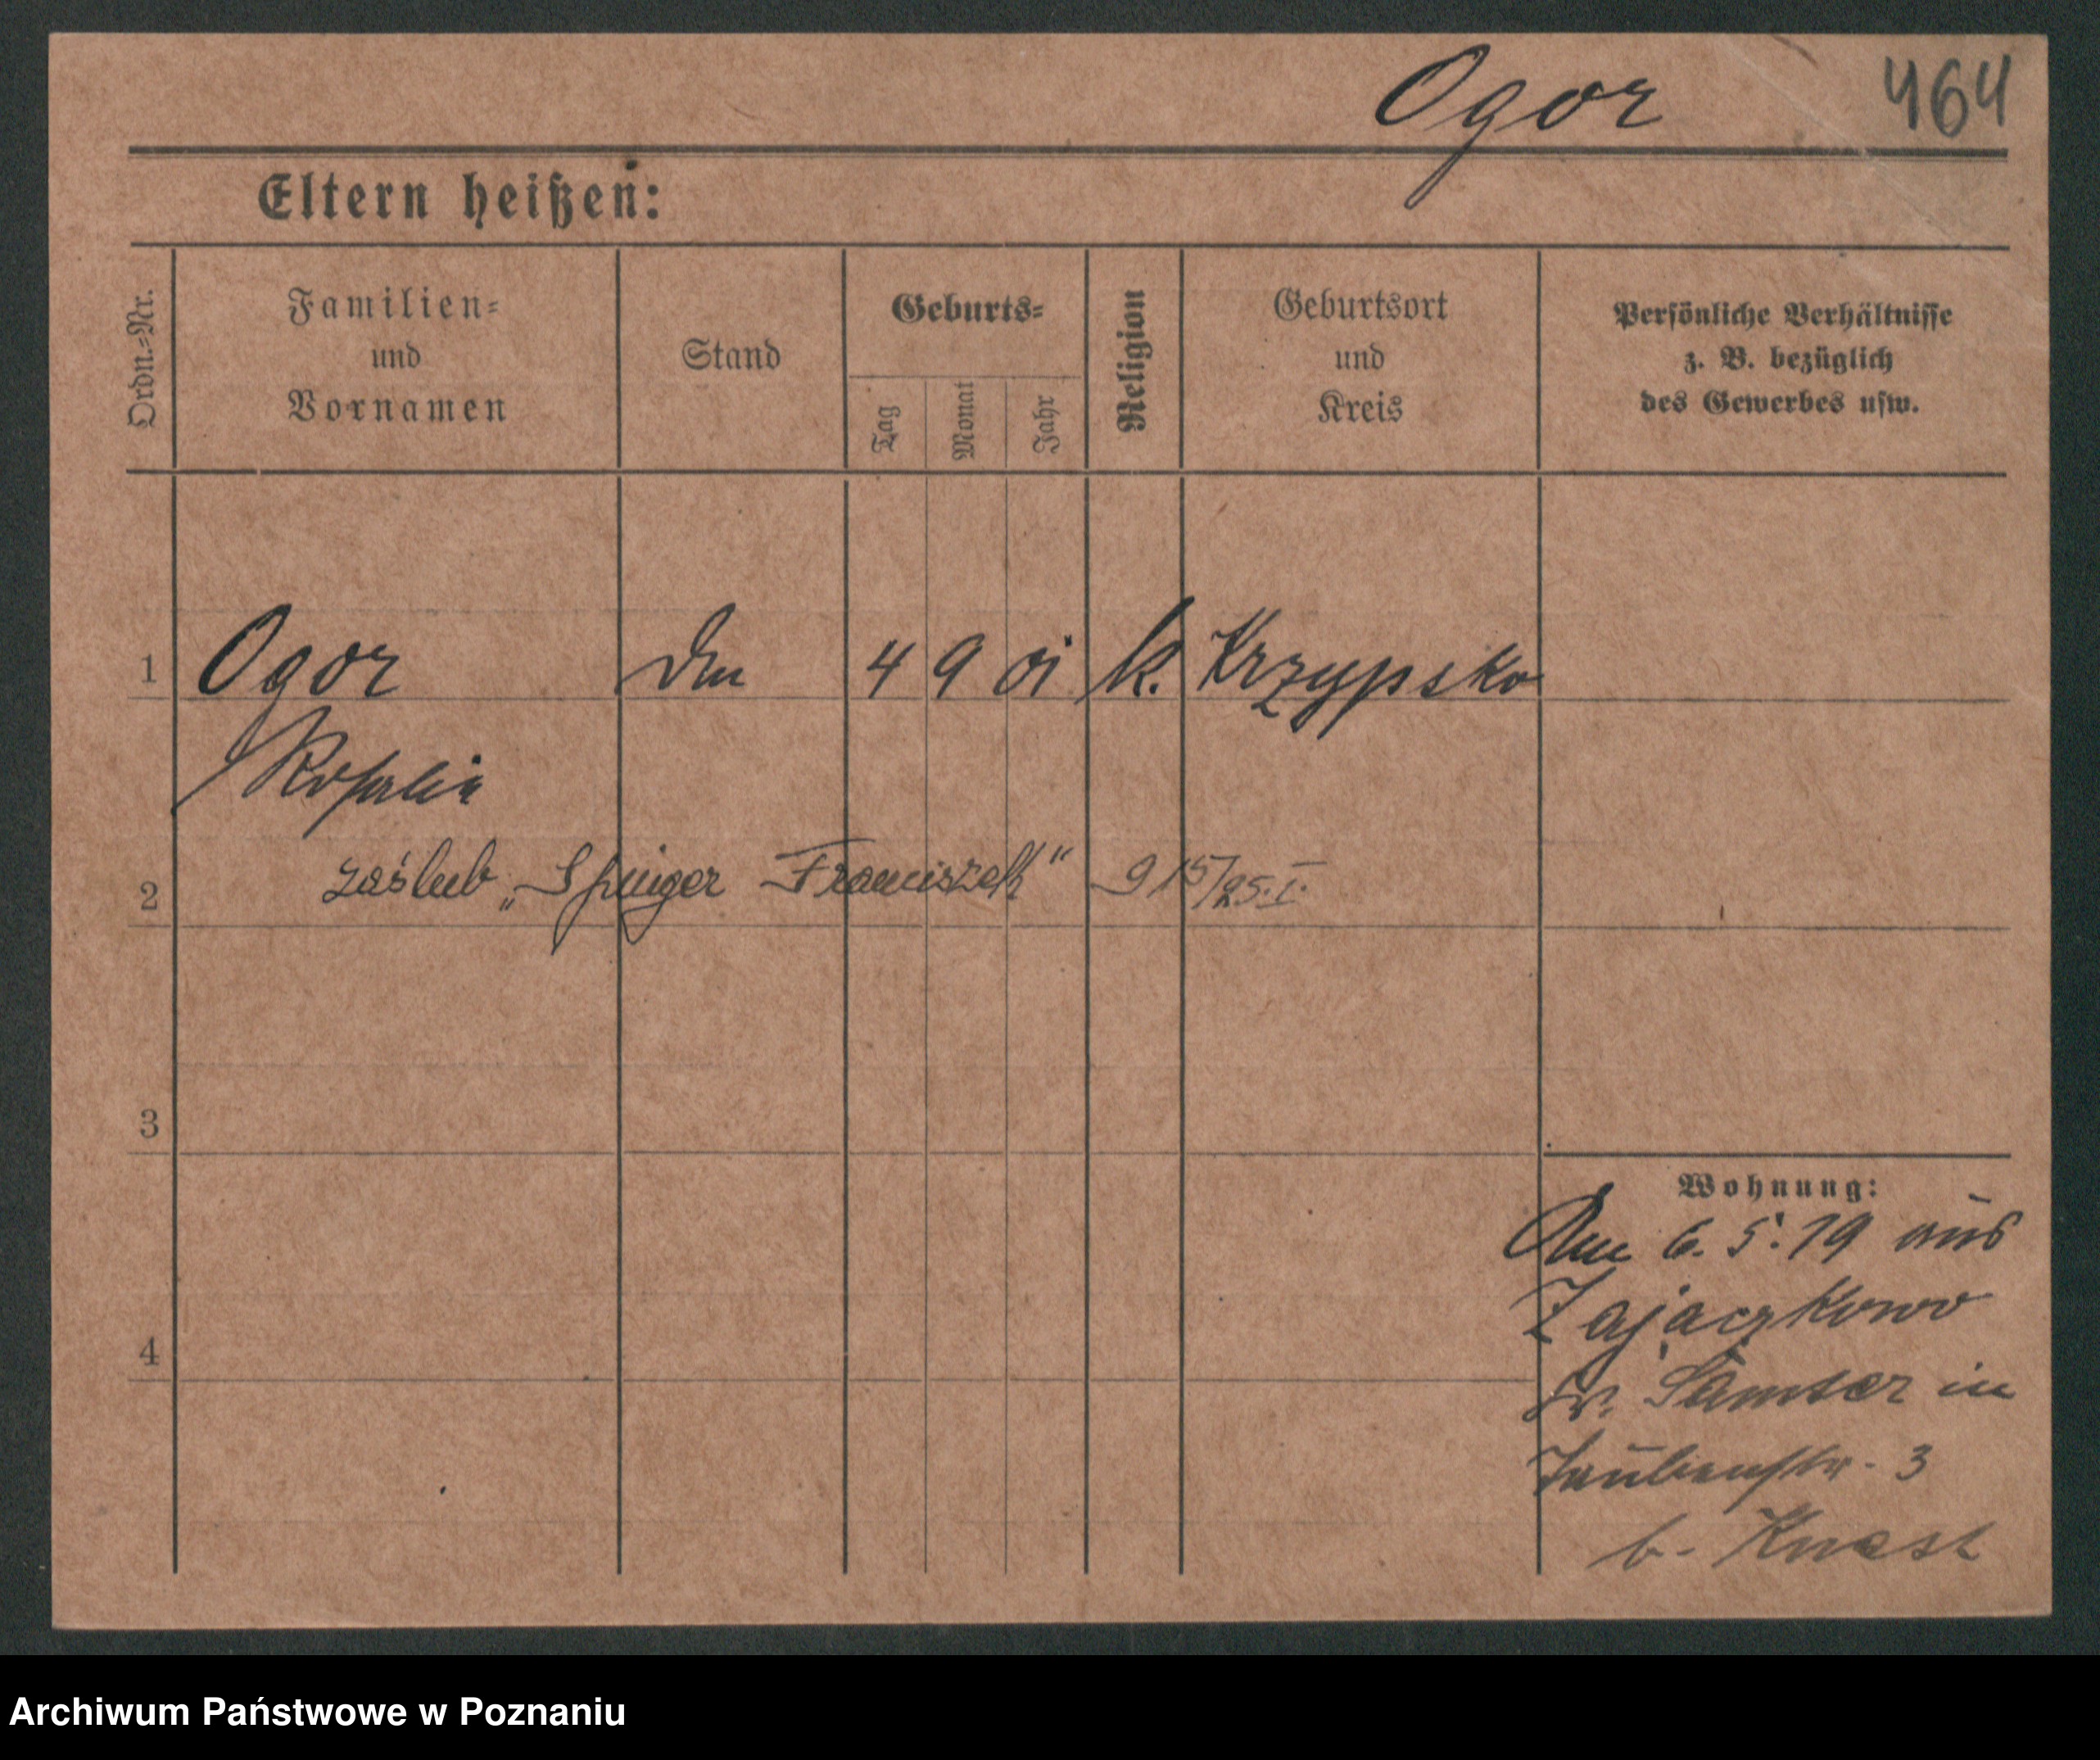 Ogor 464
Eltern heißen:
Ordn.-Nr.
Familien-
und
Vornamen
Stand
Geburts-
Tag
Monat
Jahr
Religion
Geburtsort
und
Kreis
Persönliche Verhältnisse
z. B. bezüglich
des Gewerbes usw.
1 Ogor 4 9 01 k. Krzypsko
Rosalia
2 zaślub „ Franciszek" 9 15/25. I.
3
Wohnung:
Am 6. 5. 19 aus
Zajaczkowo
Kr. Samter in
Taubenstr. 3
b. Knast
4
Archiwum Państwowe w Poznaniu